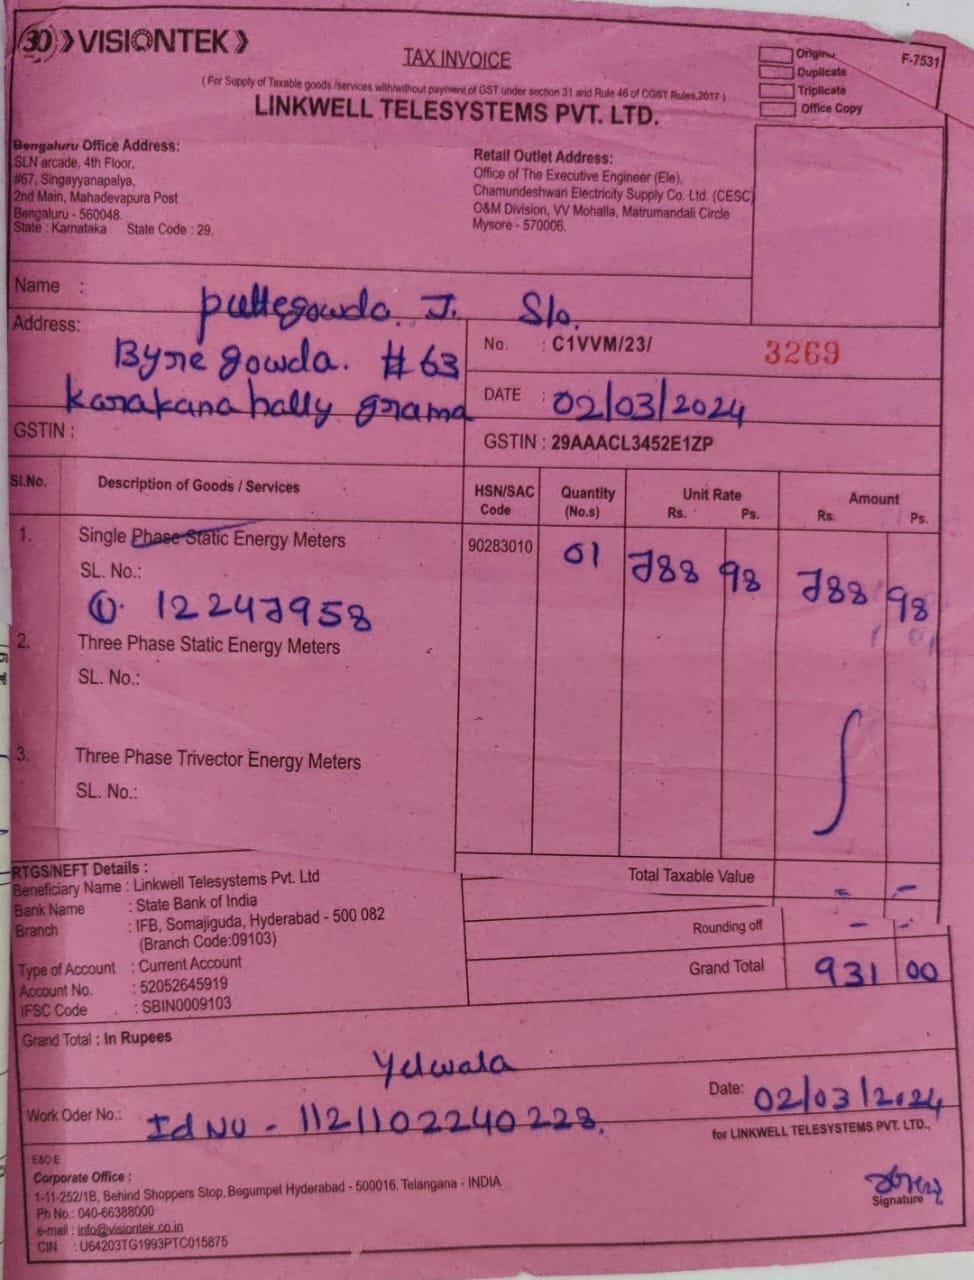 30 VISIONTEK
TAX INVOICE
Duplicate
Triplicate
Office Copy
F-7531
( For Supply of Taxable goods /services with/without payment of GST under section 31 and Rule 46 of CGST Rules,2017 )
LINKWELL TELESYSTEMS PVT. LTD.
Bengaluru Office Address:
SLN arcade, 4th Floor,
#67, Singayyanapalya,
2nd Main, Mahadevapura Post
Bengaluru - 560048.
State : Karnataka State Code : 29.
Retail Outlet Address:
Office of The Executive Engineer (Ele),
Chamundeshwari Electricity Supply Co. Ltd. (CESC)
O&M Division, VV Mohalla, Matrumandali Circle
Mysore - 570006.
Name : puttegowda. J. S/o.
Address: Byregowda. #63
karakanahally grama
No. : C1VVM/23/ 3269
DATE : 02/03/2024
GSTIN :
GSTIN : 29AAACL3452E1ZP
Sl.No. Description of Goods / Services HSN/SAC Code Quantity (No.s) Unit Rate Rs. Ps. Amount Rs. Ps.
1. Single Phase Static Energy Meters 90283010 01 788 98 788 98
SL. No.:
①. 12247958
2. Three Phase Static Energy Meters
SL. No.:
3. Three Phase Trivector Energy Meters
SL. No.:
RTGS/NEFT Details :
Beneficiary Name : Linkwell Telesystems Pvt. Ltd
Bank Name : State Bank of India
Branch : IFB, Somajiguda, Hyderabad - 500 082
(Branch Code:09103)
Type of Account : Current Account
Account No. : 52052645919
IFSC Code : SBIN0009103
Total Taxable Value - -
Rounding off - -
Grand Total 931 00
Grand Total : In Rupees
Yelwala
Work Oder No.: Id NU - 1121102240223.
Date: 02/03/2024
for LINKWELL TELESYSTEMS PVT. LTD.,
Signature
E&O E
Corporate Office :
1-11-252/1B, Behind Shoppers Stop, Begumpet Hyderabad - 500016, Telangana - INDIA
Ph No.: 040-66388000
e-mail : info@visiontek.co.in
CIN : U64203TG1993PTC015875